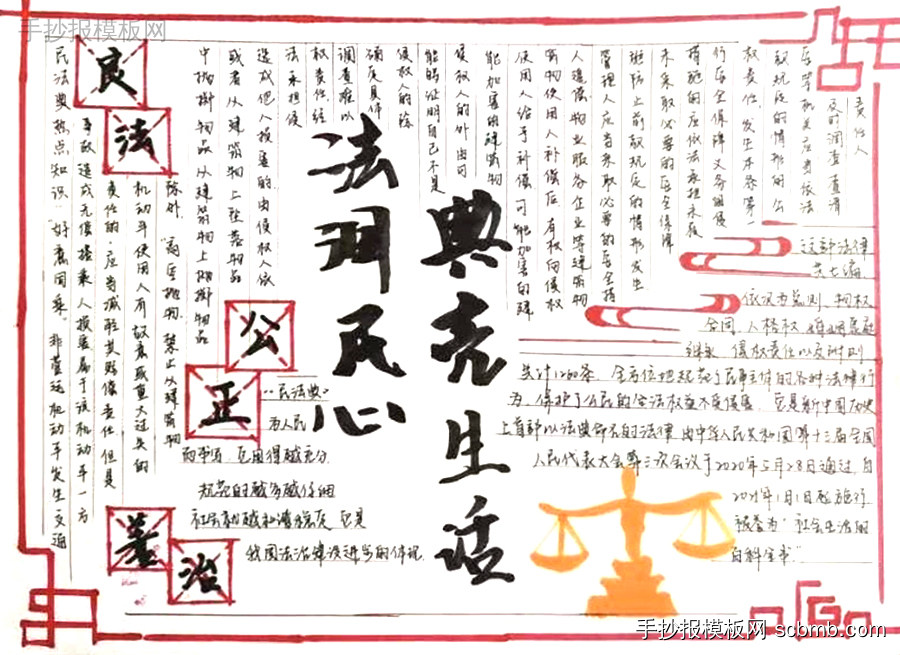 手抄报模板网
良
法
公
正
善
治
法润民心
典亮生活
民法典热点知识 "好意同乘" 非营运机动车发生交通
事故造成无偿搭乘人损害属于该机动车一方
责任的,应当减轻其赔偿责任 但是
机动车使用人有故意或重大过失的
除外 "高空抛物" 禁止从建筑物
中抛掷物品 从建筑物上抛掷物品
或者从建筑物上坠落物品
造成他人损害的,由侵权人依
法承担侵
权责任,经
调查难以
确定具体
侵权人的除
能够证明自己不是
侵权人的外 由可
能加害的建筑物
使用人给予补偿 可能加害的建
筑物使用人补偿后 有权向侵权
人追偿 物业服务企业等建筑物
管理人应当采取必要的安全措
施防止前款规定的情形发生
未采取必要的安全保障
措施的应依法应承担未履
行安全保障义务的侵
权责任 发生本条第一
款规定的情形的 公
安等机关应当依法
及时调查查清
责任人
《民法典》
为人民
而书写 它因得诚充分
规范的诚务诚信细
社会和诚和谐稳定 它是
我国法治建设进步的体现
这部法律
共七编
依次为总则、物权
合同、人格权、婚姻家庭
继承、侵权责任以及附则
共计1260条 全方位地规范了民事主体的各种法律行
为,保护了公民的合法权益不受侵害 它是新中国历史
上首部以法典命名的法律 由中华人民共和国第十三届全国
人民代表大会第三次会议于2020年5月28日通过 自
2021年1月1日起施行
被誉为"社会生活的
百科全书"
手抄报模板网 scbmb.com